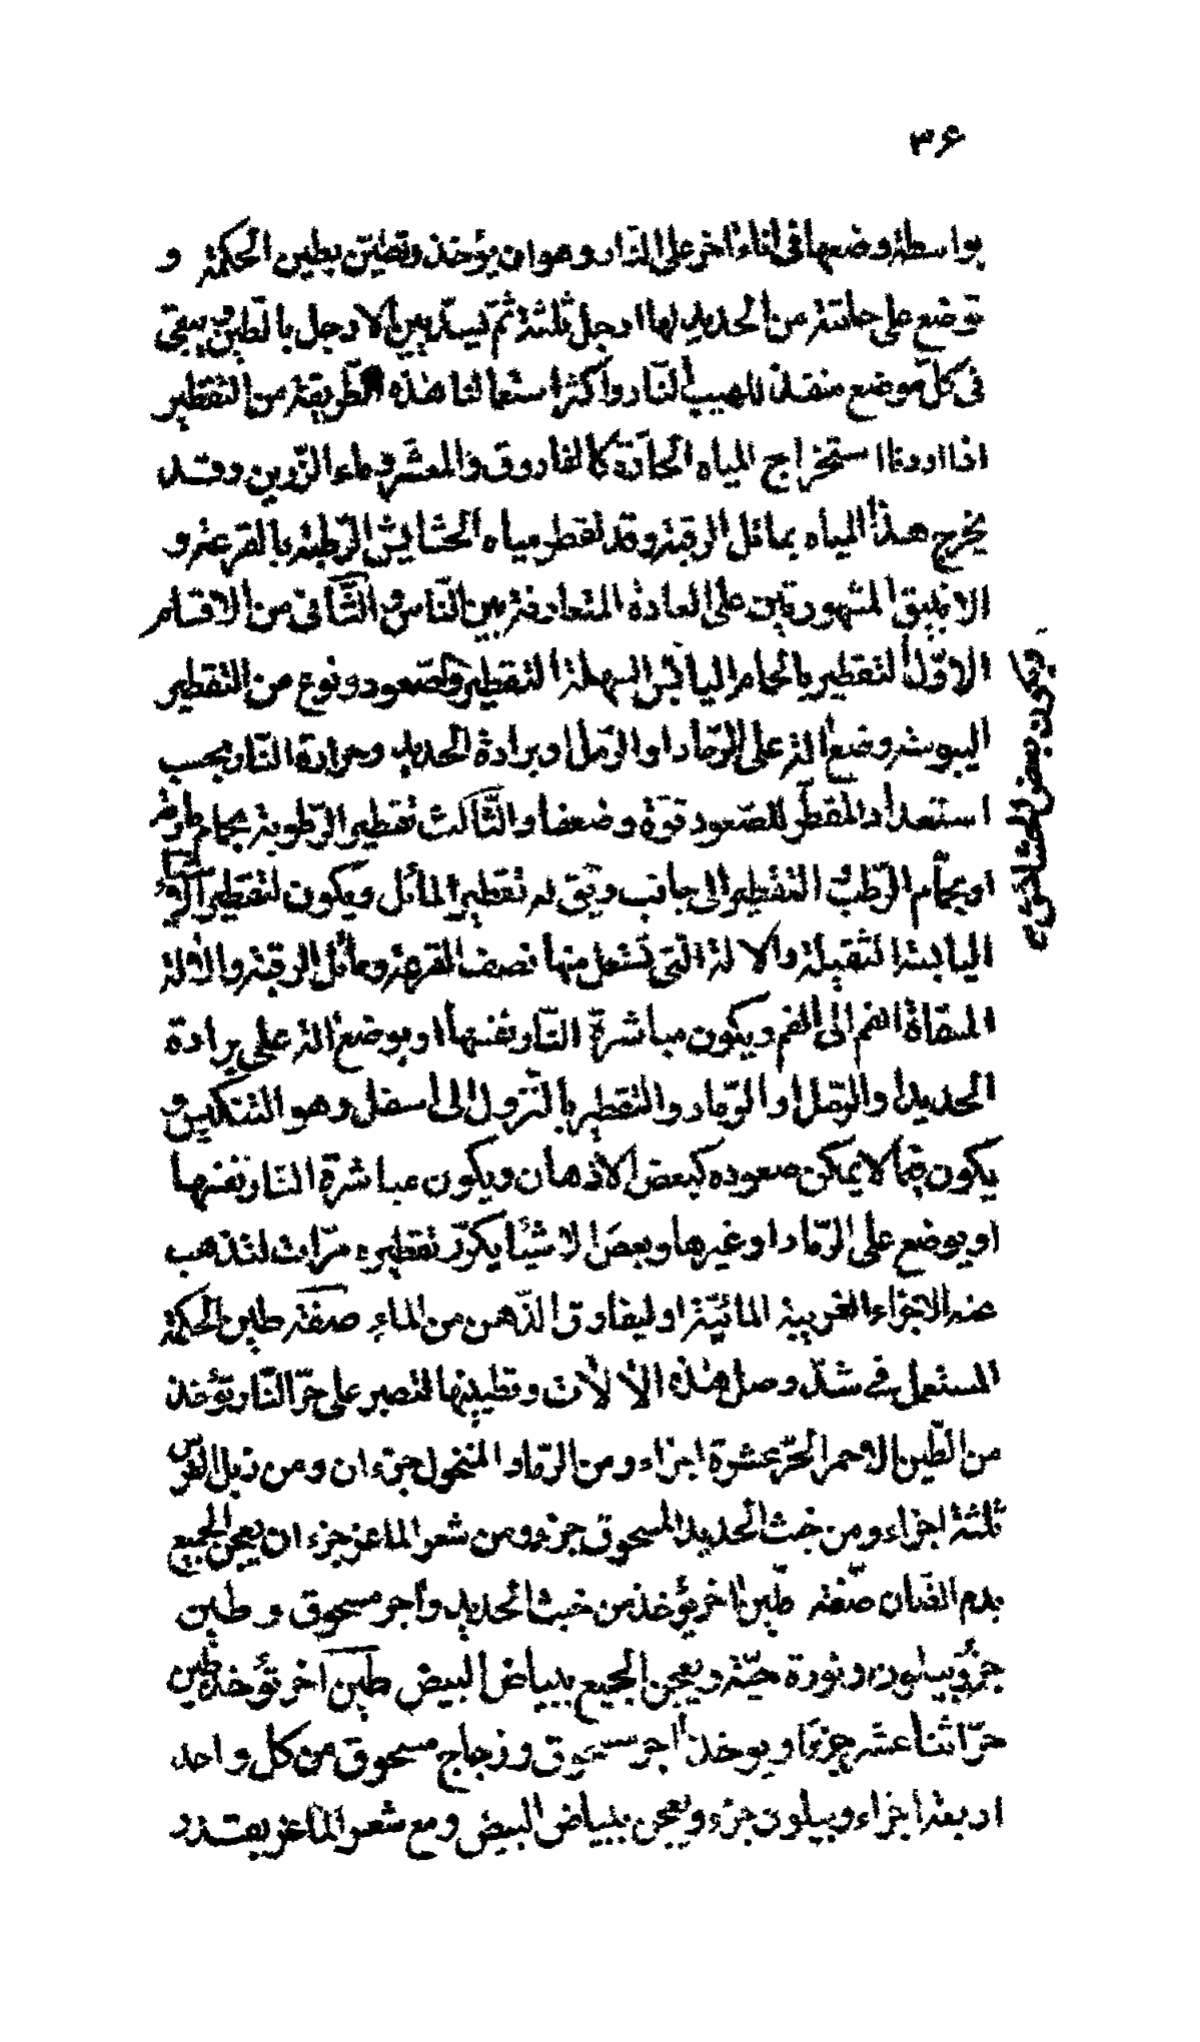 ۳۶
بواسطة وضعها فى اناء اخر على النار وهو ان يؤخذ وتطيّن بطين الحكمة و
توضع على حلقة من الحديد لها ارجل ثلثة ثم يسدّ بين الارجل بالطين ويبقى
فى كلّ موضع منفذ للهيب النار واكثر استعمالنا هذه الطّريقة من التقطير
اذا اردنا استخراج المياه الحادّة كالفاروق والمعشّر وماء الزّرين وقد
يخرج هذا المياه بمائل الرقبة وقد تقطر مياه الحشايش الرّطبة بالقرعة و
الانبيق المشهورتين على العادة المتعارفة بين النّاس والثّانى من الاقسام
الاوّل التقطير بالحمام اليابس السهلة التقطير والصّعود ونوع من التقطير
اليبوسة وضع الة على الرّماد او الرّمل او برادة الحديد وحرارة النّار بحسب
استعداد المقطّر للصّعود قوّة وضعفا والثّالث تقطير الرّطوبة بحمام مارية
او بحمّام الرّطب التقطير الى جانب ويقى له تقطير المائل ويكون لتقطير الاشياء
اليابسة الثقيلة والالة الّتى تستعمل منها نصف القرعة ومائل الرقبة والالة
الملقاة الفم الى الفم ويكون مباشرة النّار نفسها او بوضع الة على برادة
الحديد او الرّمل او الرّماد والتقطير بالنّزول الى اسفل وهو التنكيس و
يكون فيما لا يمكن صعوده كبعض الادهان ويكون مباشرة النّار نفسها
او يوضع على الرّماد او غيرها وبعض الاشيئا يكرّر تقطيره مرّات لتذهب
عنه الاجزاء الغريبة المائيّة او ليفارق الدّهن من الماء صفة طين الحكمة
المستعمل فى شدّ وصل هذه الالات وتطيينها لتصبر على حرّ النّار تؤخذ
من الطّين الاحمر الحرّ عشرة اجزاء ومن الرّماد المنخول جزءان ومن زبل الفرس
ثلثة اجزاء ومن خبث الحديد المسحوق جزء ومن شعر الماعز جزءان يعجن الجميع
بدم الضّان صفة طين اخر يؤخذ من خبث الحديد وآجر مسحوق وطين
جزء وبيلون ونورة حيّة ويعجن الجميع ببياض البيض طين اخر تؤخذ طين
حرّ اثنا عشر جزءا ويوخذ آجر مسحوق وزجاج مسحوق من كل واحد
اربعة اجزاء وبيلون جزء ويعجن ببياض البيض ومع شعر الماعز بقدر
ويكون بعض الحشائش